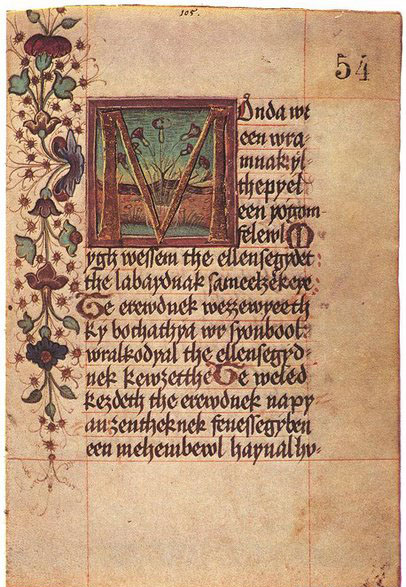 105.
54
MOnda wr
een wra-
mnak yl-
thepyel
een yogom-
felewl M
ygh wessem the ellensegydet
the labaydnak sameelzekeye:
Te erewdnek wezzewyeeth
ky bochathya wr syonbool:
wralkodyal the ellensegyd-
nek kewzetthe Te weled
kezdeth the erewdnek napy
an zentheknek fenessegyben
een mehembewl haynalhv-